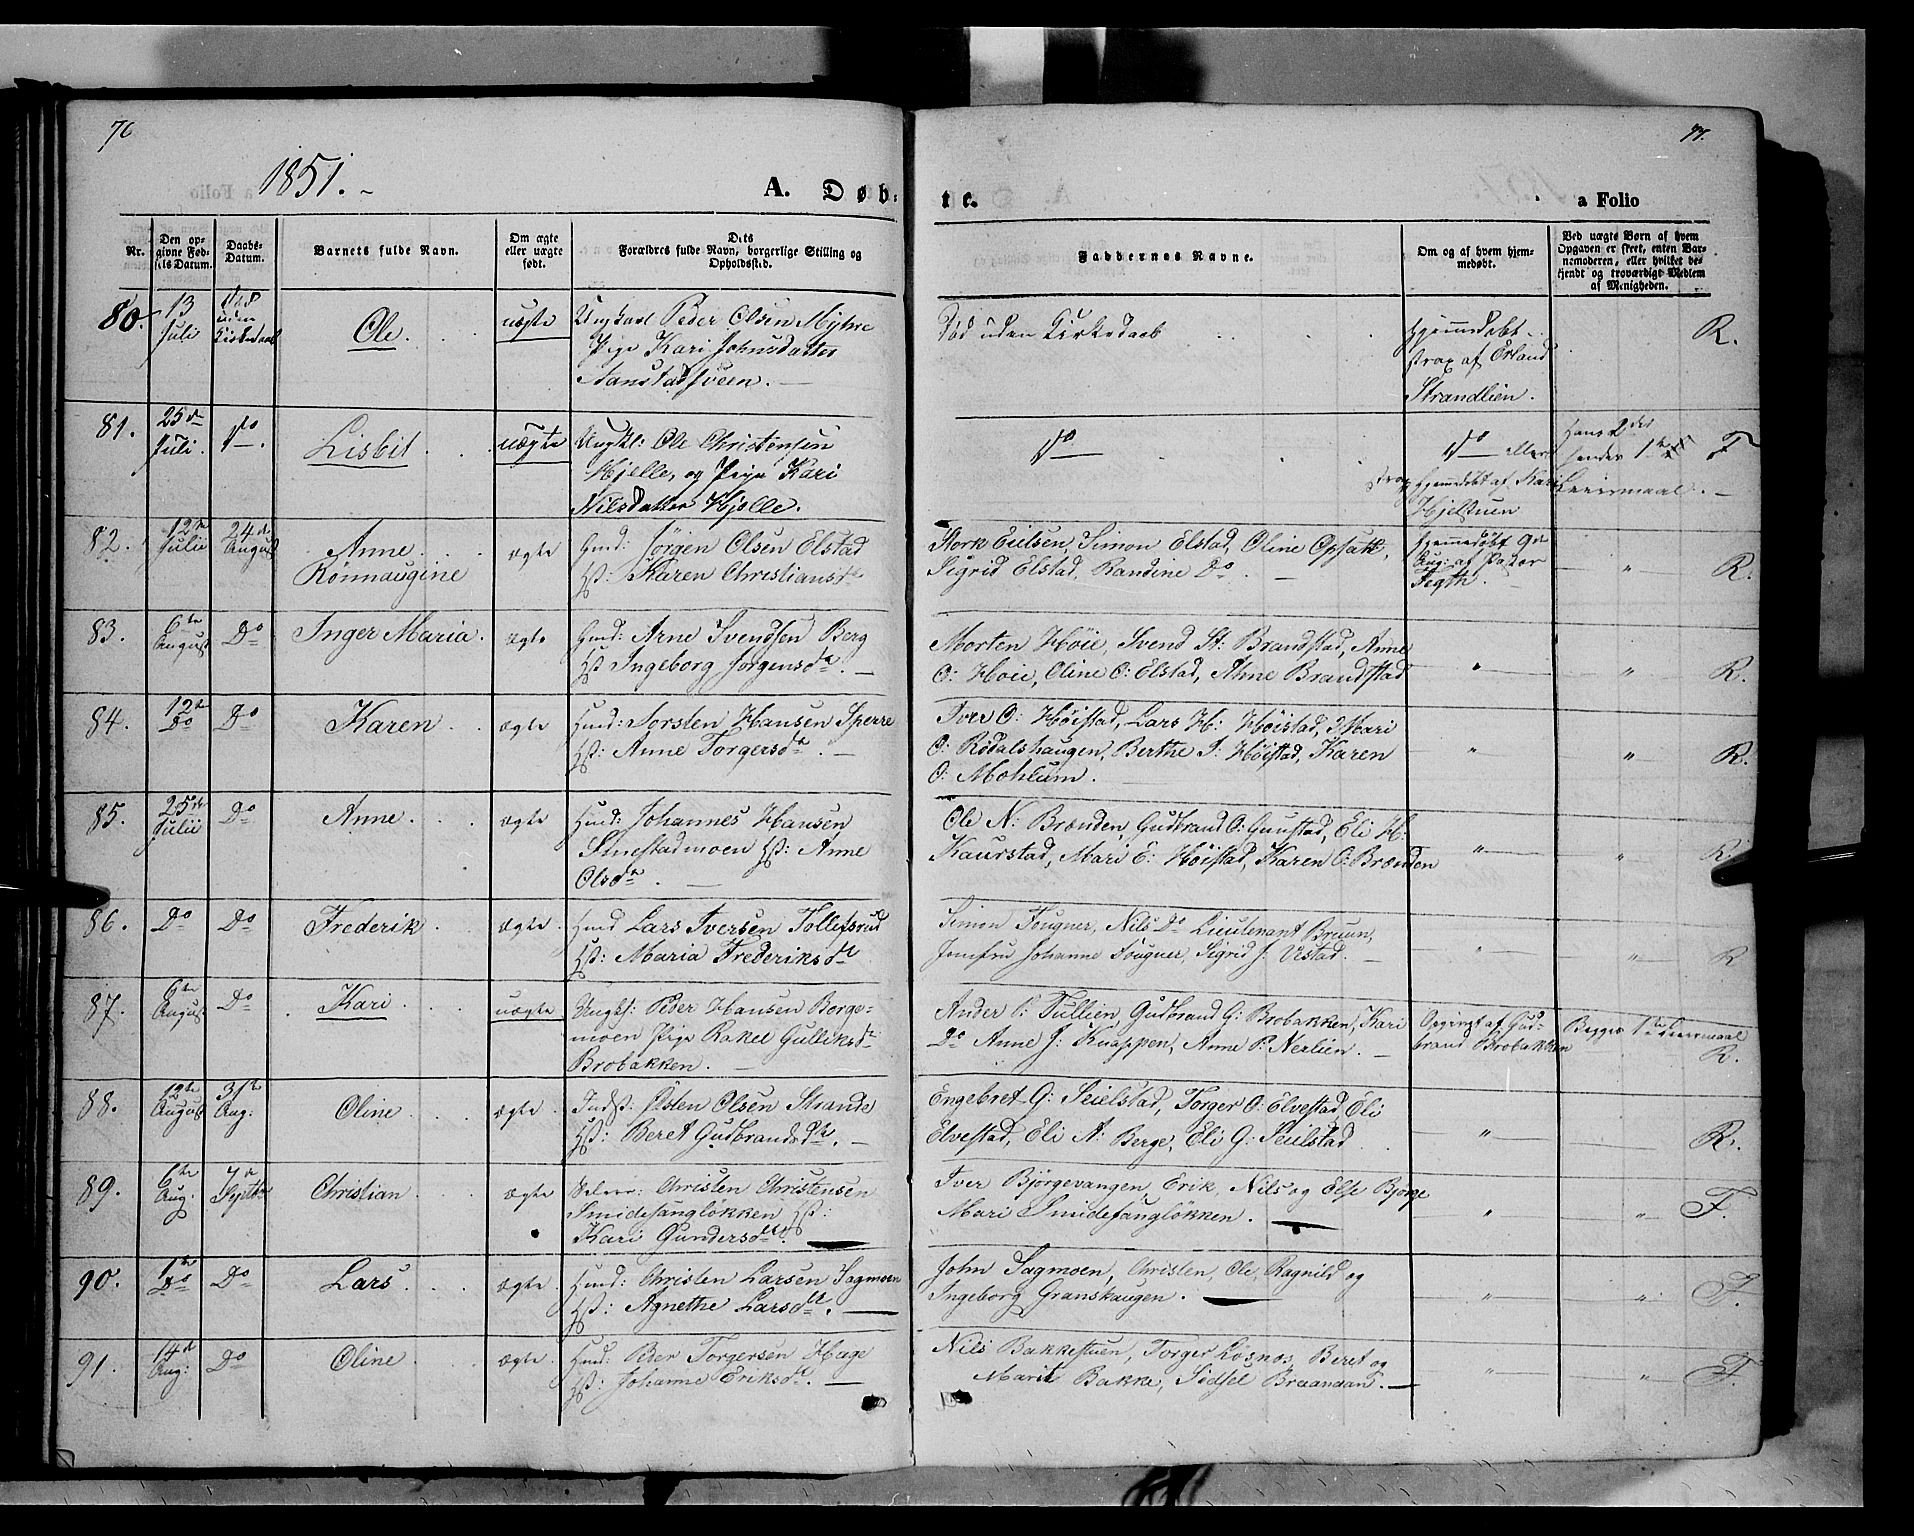 76
77.
1851.
A. Døb-
te.
a Folio
Nr.
Den op-
givne Fød-
sels Datum.
Daabs-
Datum.
Barnets fulde Navn.
Om ægte
eller uægte
født.
Dets
Forældres fulde Navn, borgerlige Stilling og
Opholdssted.
Faddernes Navne.
Om og af hvem hjem-
medøbt.
Ved uægte Børn af hvem
Opgaven er skeet, enten Bar-
nemoderen, eller hvilket be-
kjendt og troværdigt Medlem
af Menigheden.
80. 13 Juli
død uden Kirkedaab
Ole.
uægte
Ungkarl Peder Olsen Myhre
Pige Kari Johnsdatter
Aanstadsveen.
Død uden Kirkedaab
Hjemmedøbt
strax af Erland
Strandlien.
R.
81. 25de Juli.
Do.
Lisbit
uægte
Ungkl: Ole Christensen
Hjelle, og Pige Kari
Nilsdatter Hjelle.
Do
Do eller
strax Hjemmedøbt af Mari
Hjelstuen
Hans 2det
hendes 1te
Leiermaal.
F
82. 12te Julii
24de August
Anne
Rønnaugine
ægte
Gmd: Jørgen Olsen Elstad
Hst: Karen Christiansdtr
Stork Eielsen, Simon Elstad, Oline Opsatt,
Sigrid Elstad, Randine Do.
hjemmedøbt 9de
Aug: af Pastor
Fegth.
" R.
83. 6te August
Do
Inger Maria.
ægte
Gmd: Arne Svendsen Berg
Hst Ingeborg Jørgensdtr.
Morten Høie, Svend St: Brandstad, Anne
O: Høie, Oline O: Elstad, Anne Brandstad
" " R.
84. 12te Do
Do
Karen
ægte
Hmd: Torsten Hansen Sperre
Hst: Anne Torgersdtr.
Iver O: Høistad, Lars H: Høistad, Mari
O: Rødalshaugen, Berthe I: Høistad, Karen
O: Mohlum.
" " R.
85. 25de Julii
Do
Anne.
ægte
Hmd: Johannes Hansen
Smestadmoen Hst: Anne
Olsdtr.
Ole N: Brænden, Gudbrand O: Gunstad, Eli H:
Kaurstad, Mari E: Høistad, Karen O: Brænden
" " R.
86. Do
Do
Frederik
ægte.
Hmd Lars Iversen Tollefsrud
Hst: Maria Frederiksdtr
Simon Fougner, Nils Do Lieutenant Bruun,
Jomfru Johanne Fougner, Sigrid J: Vistad.
" " R
87. 6te August
Do
Kari
uægte
Ungkl: Peder Hansen Borge-
moen Pige Rakel Gulliksdtr
Brobakken.
Ander P: Tullien, Gudbrand G: Brobakken, Kari
Do Anne J: Knappen, Anne P: Nerlien.
Opgivet af Gud-
brand Brobakken
Begges 1ste Leiermaal
R.
88. 12te August
31te Aug:
Oline
ægte
Indst: Østen Olsen Strande
Hst: Beret Gudbrandsdtr.
Engebret G: Seielstad, Torger O: Elvestad, Eli
Elvestad, Eli A: Berge, Eli G: Seielstad
" R.
89. 6te Aug:
7de Septbr
Christian
ægte
Christen Christensen
Smidesangløkken Hst:
Kari Gundersdtr.
Iver Bjørgevangen, Erik, Nils og Else Bjørge
Mari Smidesangløkken.
" " F.
90. 1te Do
Do
Lars
ægte
Hmd: Christen Larsen Sagmoen
Hst: Agnethe Larsdtr.
John Sagmoen, Christen, Ole, Ragnild og
Ingeborg Granskaugen.
" " F.
91. 14de Aug:
Do
Oline
ægte.
Hmd: Peder Torgersen Hage
Hst: Johanne Eriksdtr.
Nils Bakkestuen, Torger Løsnæs, Beret og
Marit Bakke, Sidsel Braanaas.
" " F.